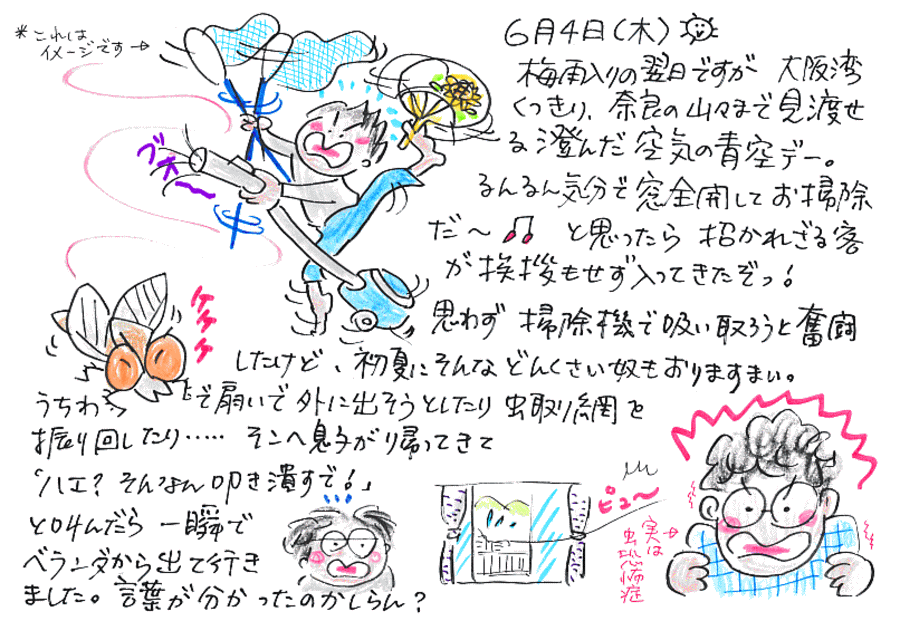 ＊これは
イメージです→
6月4日(木)
梅雨入りの翌日ですが 大阪湾
くっきり、奈良の山々まで見渡せ
る澄んだ空気の青空デー。
るんるん気分で窓全開してお掃除
だ〜♫ と思ったら 招かれざる客
が挨拶もせず入ってきたぞっ！
思わず 掃除機で吸い取ろうと奮闘
したけど、初夏にそんなどんくさい奴もおりますまい。
うちわで扇いで外に出そうとしたり 虫取り網を
振り回したり…… そこへ息子が帰ってきて
「ハエ？そんなん叩き潰すで！」
と叫んだら 一瞬で
ベランダから出て行き
ました。言葉が分かったのかしらん？
ブオー
ケケケ
ピュ〜
実は→
虫恐怖症